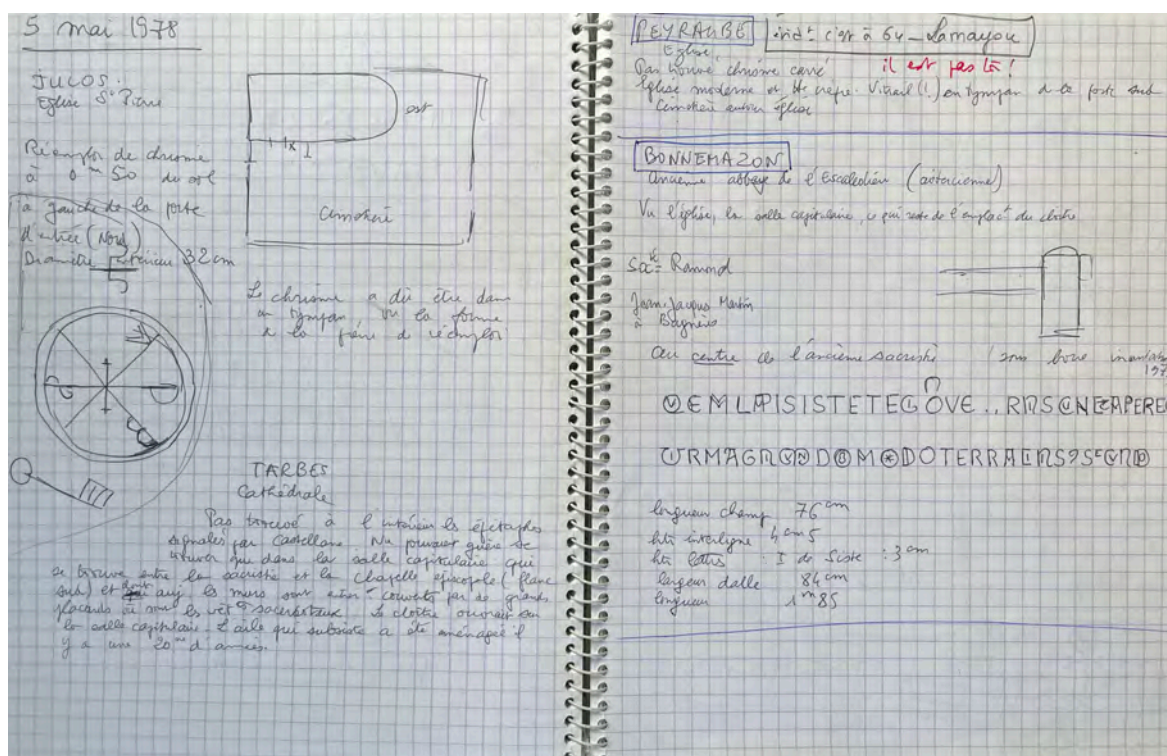 5 mai 1978
JULOS.
Eglise St Pierre
Réemploi de chrisme
à 0m 50 du sol
à gauche de la porte
d'entrée (Nord)
Diamètre extérieur 32 cm
est
Cimetière
Le chrisme a dû être dans
un tympan, vu la forme
de la pierre de réemploi
TARBES
Cathédrale
Pas trouvé à l'intérieur les épitaphes
signalées par Castellane. Ne peuvent guère se
trouver que dans la salle capitulaire qui
se trouve entre la sacristie et la chapelle épiscopale (flanc
sud) et dont auj. les murs sont couverts par de grands
placards où sont les vêtts sacerdotaux. Le cloître ouvrait sur
la salle capitulaire. L'aile qui subsiste a été aménagée il
y a une 20ne d'années.
PEYRAUBE évidt c'est à 64 - Lamayou
Eglise, il est pas là!
Pas trouvé chrisme carré
Eglise moderne et crépie. Vitrail (!) en tympan de la porte sud
Cimetière autour église
BONNEMAZON
Ancienne abbaye de l'Escaledieu (cistercienne)
Vu l'église, la salle capitulaire, ce qui reste de l'emplact du cloître
Socté Ramond
Jean-Jacques Martin
à Bagnères
Au centre de l'ancienne sacristie
QEMLAPISISTETEGOVE..RNSCNEAPERE
URMAGNCNDOMODOTERRAENS?SECND
longueur champ 76 cm
htr interligne 4 cm 5
htr lettres : I de Siste : 3 cm
largeur dalle 84 cm
longueur 1m 85